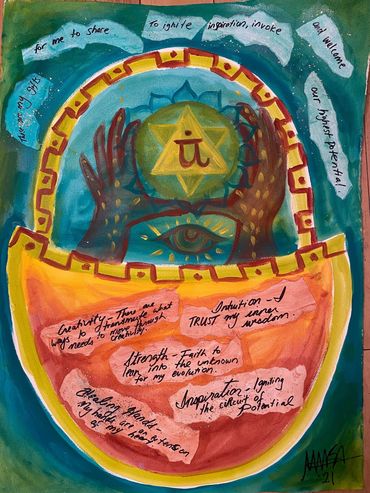 my sacred gifts
for me to share
To ignite inspiration, invoke
and welcome
our highest potential.
यं
Creativity - There are
ways to transmute what
needs to move through
creatively.
Intuition - I
TRUST my inner
wisdom.
Strength - Faith to
lean into the unknown
for my evolution.
Healing Hands -
My hands are an extension
of my heart
Inspiration - Igniting
the circuit of
Potential
21